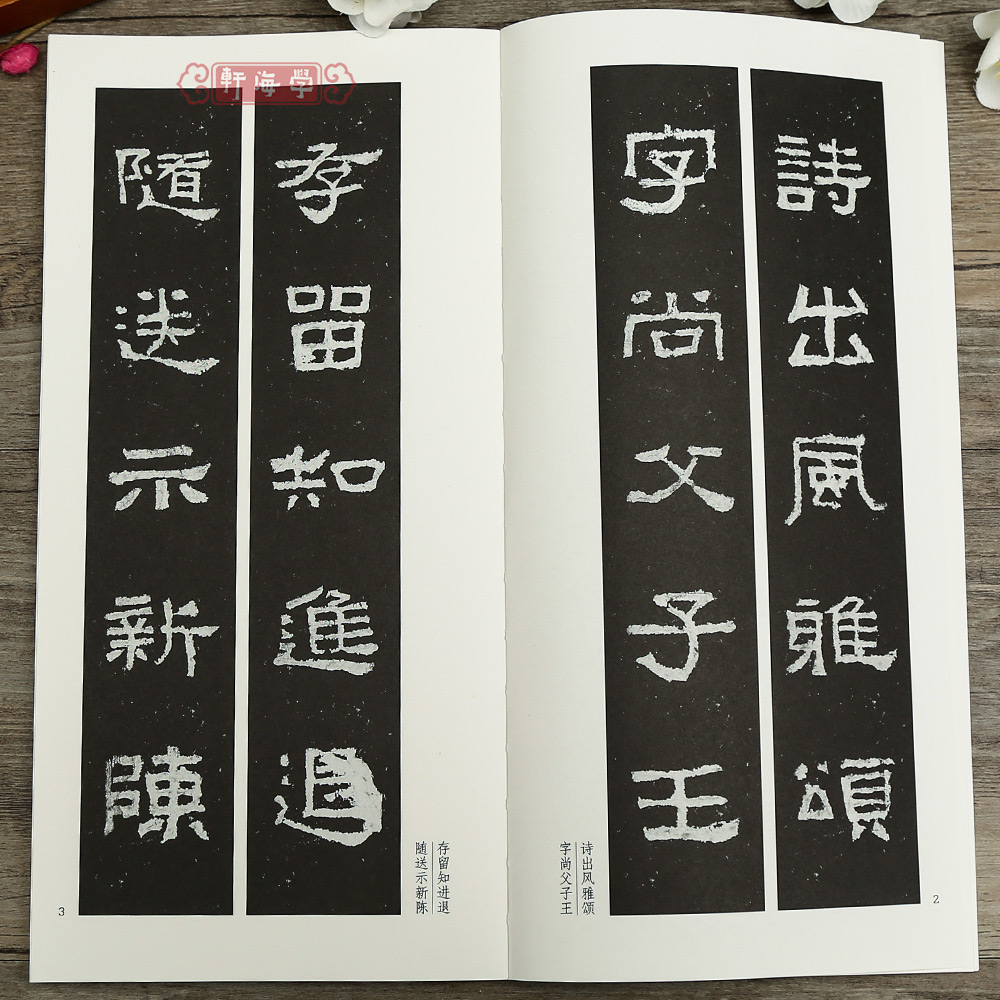 詩出風雅頌
字尚父子王
诗出风雅颂
字尚父子王
2
軒海学
存留知進退
隨送示新陳
存留知进退
随送示新陈
3